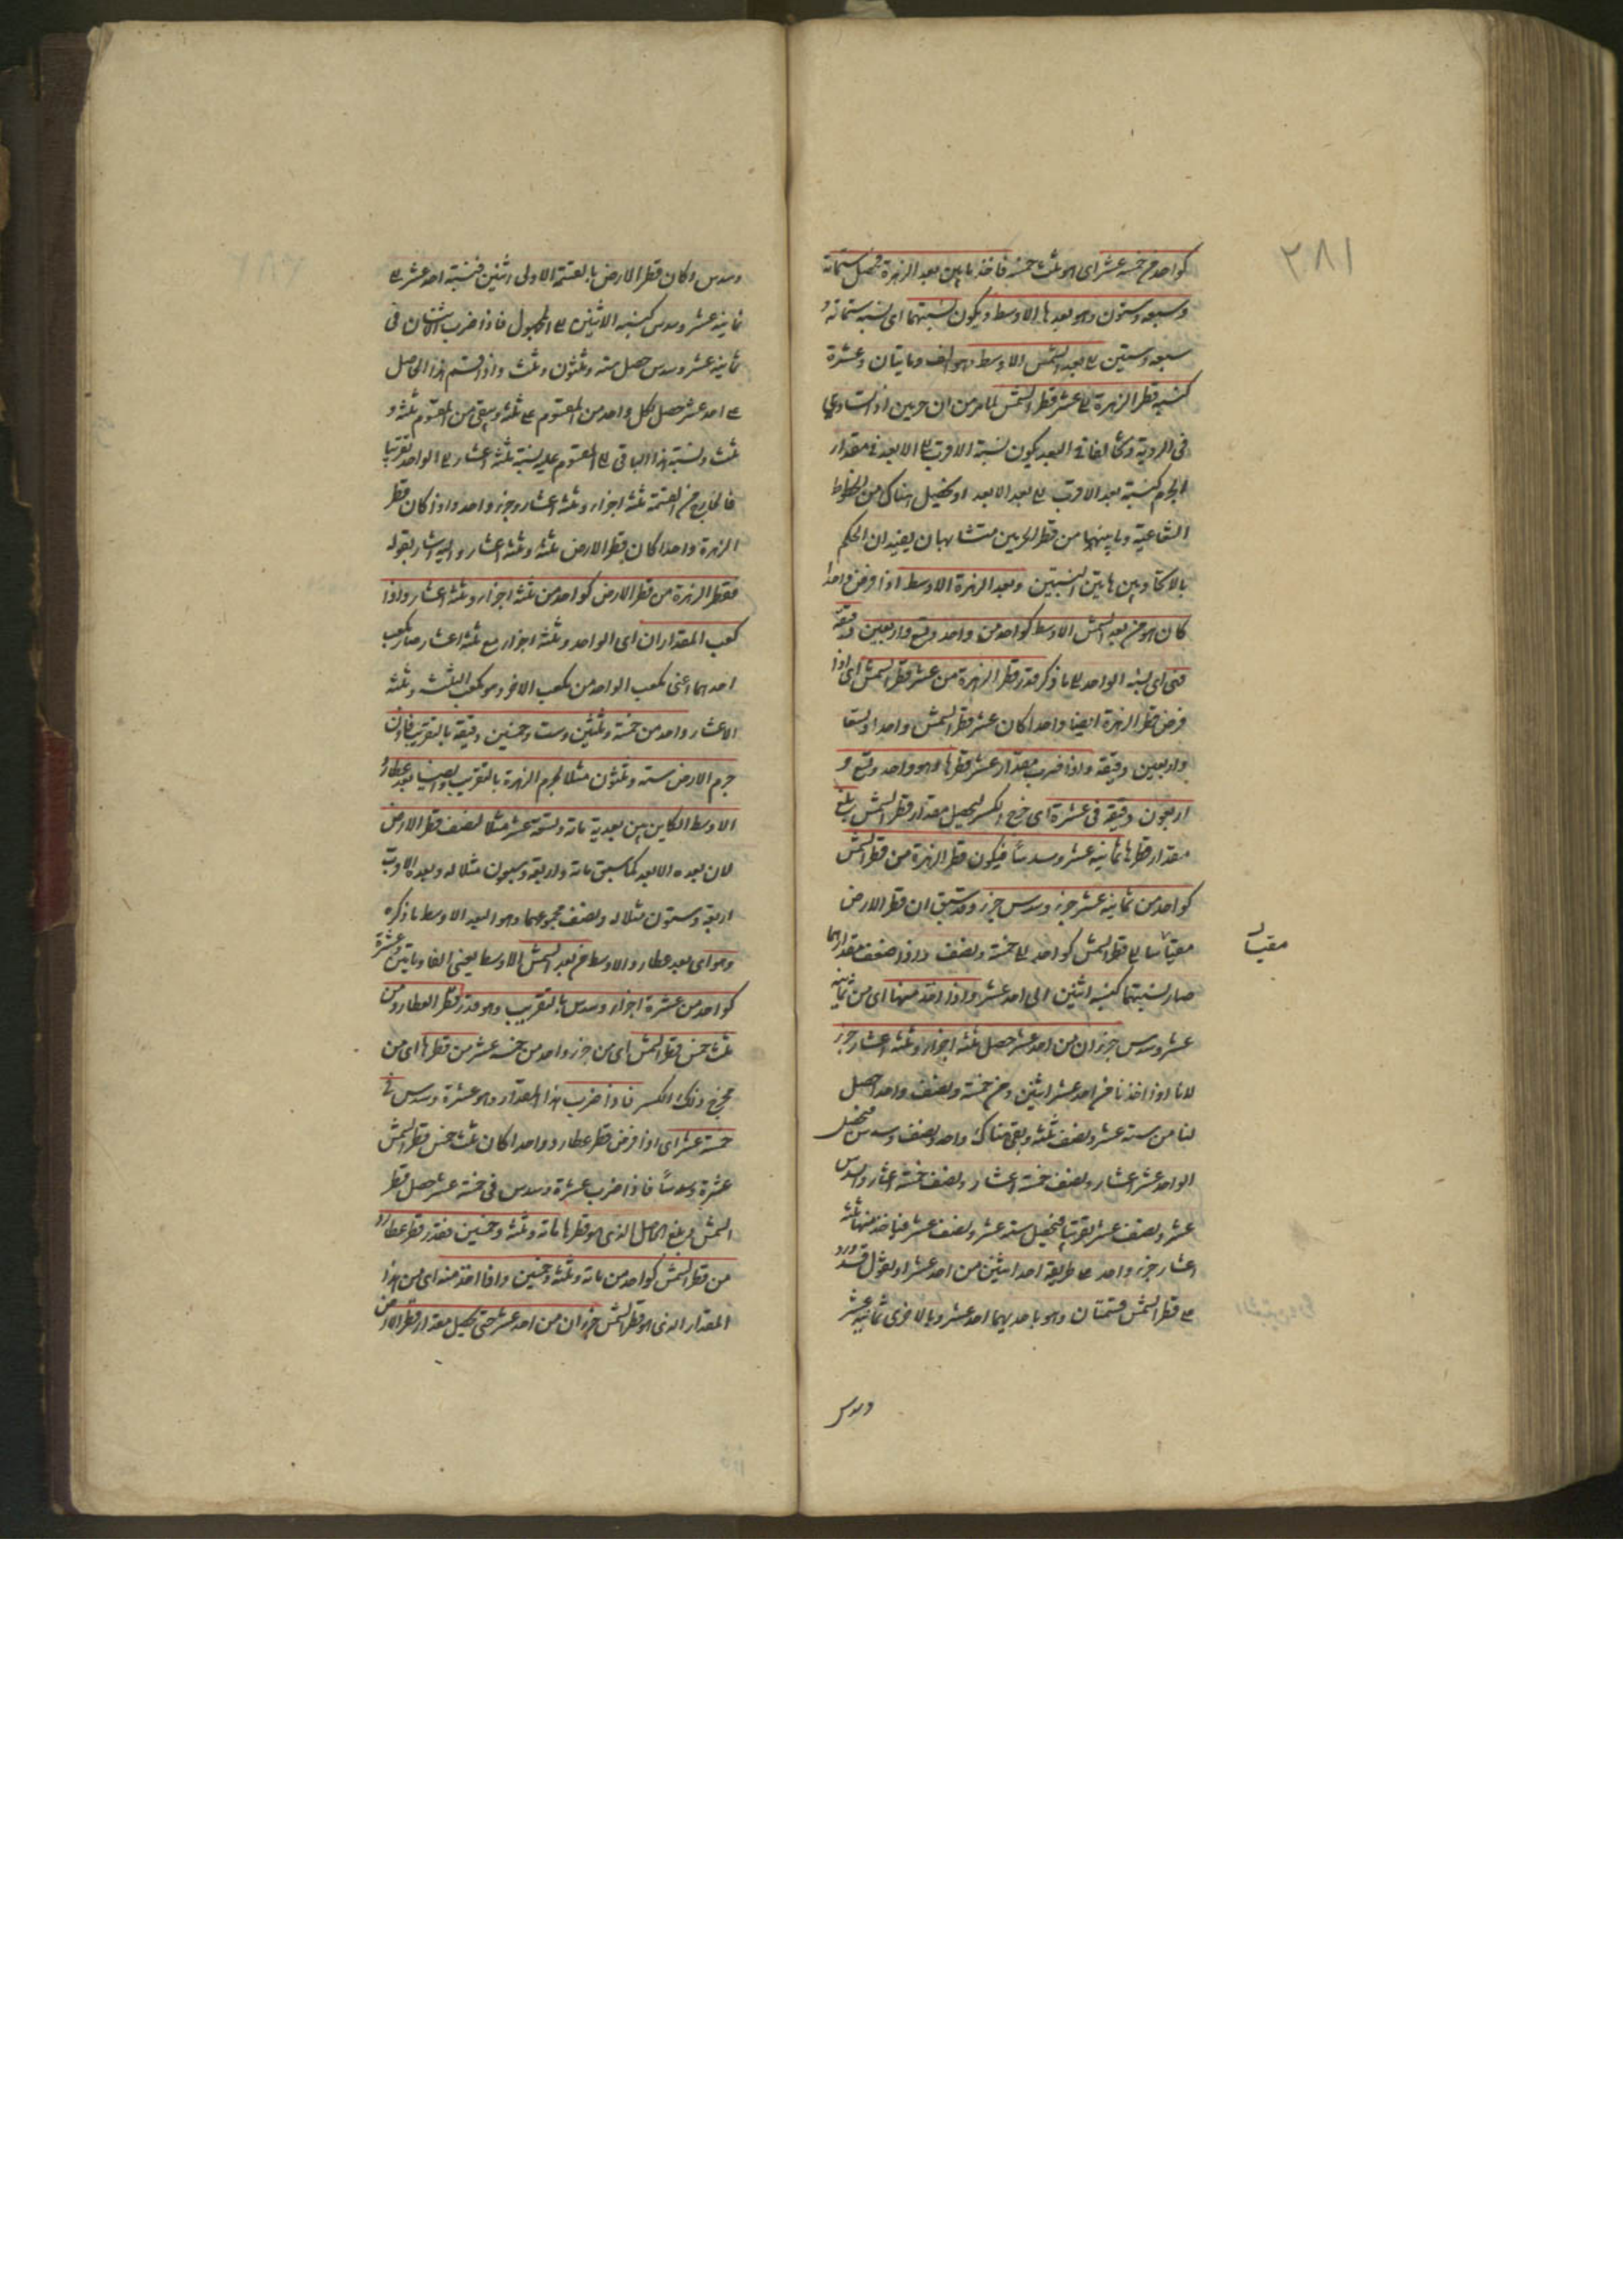 ٢٨١
كواحد من خمسة عشر اى هو ثلث خمسة فاخذ ما بين بعد الزهرة فحصل ستمائة
وسبعة وستون وهو بعدها الاوسط ويكون نسبتهما اى نسبة ستمائة و
سبعة وستين الى بعد الشمس الاوسط وهو الف ومائتان وعشرة
كنسبة قطر الزهرة الى عشر قطر الشمس لما مر من ان جرمين اذا تساويا
فى الرؤية وتخالفا فى البعد يكون نسبة الاقرب الى الابعد فى مقدار
الجرم كنسبة بعد الاقرب الى بعد الابعد اذ يتخيل هناك من الخطوط
الشعاعية وما بينهما من قطر الجرمين متشابهان يفيدان الحكم
بالاتحاد بين هاتين النسبتين وبعد الزهرة الاوسط اذا فرض واحدا
كان هو من بعد الشمس الاوسط كواحد من واحد وتسع واربعين دقيقة
فتى اى نسبة الواحد الى ما ذكر قدر قطر الزهرة من عشر قطر الشمس اى اذا
فرض قطر الزهرة ايضا واحدا كان عشر قطر الشمس واحدا وتسعا
واربعين دقيقة واذا ضرب مقدار عشر قطرها وهو واحد وتسع و
اربعون دقيقة فى عشرة اى مخرج الكسر ليحصل مقدار قطر الشمس بلغ
مقدار قطرها ثمانية عشر وسدسا فيكون قطر الزهرة من قطر الشمس
كواحد من ثمانية عشر جزء وسدس جزء وقد سبق ان قطر الارض
مقيسا الى قطر الشمس كواحد الى خمسة ونصف واذا ضعف مقدارهما
مقيسا
صار نسبتهما كنسبة اثنين الى احد عشر واذا اخذ منها اى من ثمانية
عشر وسدس جزءان من احد عشر حصل ثلثة اجزاء وثلثة اعشار جزء
لانا اذا اخذنا من احد عشر اثنين ومن خمسة ونصف واحدا حصل
لنا من ستة عشر ونصف ثلثة وبقى هناك واحد ونصف وسدس فحصل
الواحد عشر اعشار ونصف خمسة اعشار ونصف خمسة اعشار والسدس
عشر ونصف عشر تقريبا فيحصل ستة عشر ونصف عشر فناخذ منها ثلثة
اعشار جزء واحد على طريقة اخذ اثنين من احد عشر او نقول قد ورد
على قطر الشمس قسمتان وهو باحديهما احد عشر وبالاخرى ثمانية عشر
وسدس
وسدس وكان قطر الارض بالقسمة الاولى اثنين فنسبة احد عشر الى
ثمانية عشر وسدس كنسبة الاثنين الى المجهول فاذا ضرب الاثنان فى
ثمانية عشر وسدس حصل ستة وثلثون وثلث واذا قسم هذا الحاصل
على احد عشر حصل لكل واحد من المقسوم عليه ثلثة ويبقى من المقسوم ثلثة و
ثلث ونسبة هذا الباقى الى المقسوم عليه نسبة ثلثة اعشار الى الواحد تقريبا
فالخارج من القسمة ثلثة اجزاء وثلثة اعشار جزء واحد واذا كان قطر
الزهرة واحدا كان قطر الارض ثلثة وثلثة اعشار واليه اشار بقوله
فقطر الزهرة من قطر الارض كواحد من ثلثة اجزاء وثلثة اعشار واذا
كعب المقداران اى الواحد وثلثة اجزاء مع ثلثة اعشار صار مكعب
احدهما اعنى مكعب الواحد من مكعب الاخر وهو مكعب الثلثة وثلثة
الاعشار واحد من خمسة وثلثين وست وخمسين دقيقة بالتقريب فاذن
جرم الارض ستة وثلثون مثلا لجرم الزهرة بالتقريب وايضا بعد عطارد
الاوسط الكاين بين بعديه مائة وتسعة عشر مثلا لنصف قطر الارض
لان بعده الابعد كما سبق مائة واربعة وسبعون مثلا له وبعده الاقرب
اربعة وستون مثلا له ونصف مجموعهما وهو البعد الاوسط ما ذكره
وهو اى بعد عطارد الاوسط من بعد الشمس الاوسط يعنى الفا ومائتين وعشرة
كواحد من عشرة اجزاء وسدس بالتقريب وهو قدر قطر العطارد من
ثلث خمس قطر الشمس اى من جزء واحد من خمسة عشر من قطرها اى من
مخرج ذلك الكسر فاذا ضرب هذا المقدار وهو عشرة وسدس فى
خمسة عشر اى اذا فرض قطر عطارد واحدا كان ثلث خمس قطر الشمس
عشرة وسدسا فاذا ضرب عشرة وسدس فى خمسة عشر حصل قطر
الشمس فبلغ الحاصل الذى هو قطرها مائة وثلثة وخمسين فقدر قطر عطارد
من قطر الشمس كواحد من مائة وثلثة وخمسين واذا اخذ منه اى من هذا
المقدار الذى هو قطر الشمس جزءان من احد عشر حتى يحصل مقدار قطر الارض